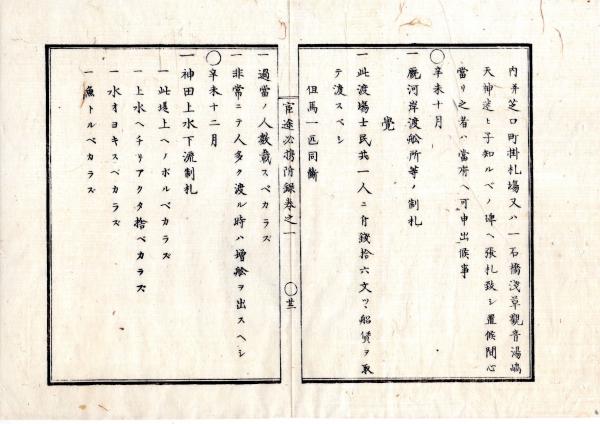 内并芝口町掛札場又ハ一石橋淺草觀音湯嶋
天神迷ヒ子知ルベノ碑ヘ張札致シ置候間心
當リ之者ハ當府ヘ可申出候事
○辛未十月
一厩河岸渡舩所等ノ制札
覺
一此渡塲士民共一人ニ付錢拾六文ツヽ船賃ヲ取
テ渡スベシ
但馬一匹同斷
官途必携附録卷之一
○廿三
一過當ノ人數載スベカラズ
一非常ニテ人多ク渡ル時ハ増舩ヲ出スヘシ
○辛未十二月
一神田上水下流制札
一此堤上ヘノボルベカラズ
一上水ヘチリアクタ捨ベカラズ
一水オヨキスベカラズ
一魚トルベカラズ